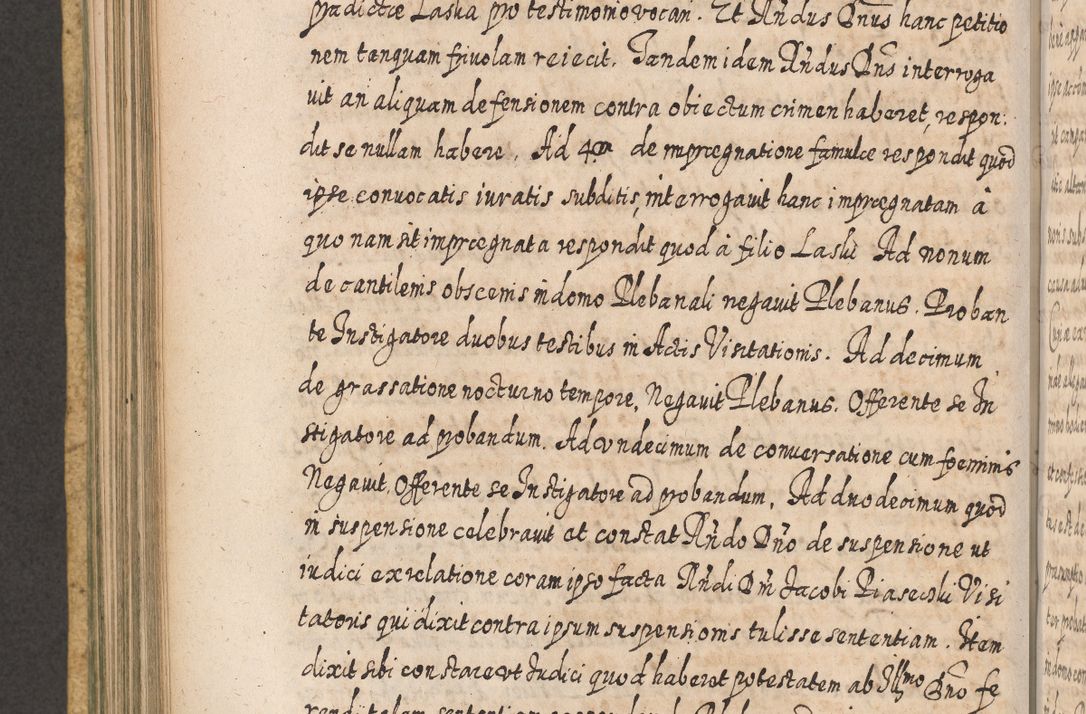 prædictæ Laska pro testimonio vocari. Et Rñdus Dñus hanc petitio
nem tanquam friuolam reiecit. Tandem idem Rñdus Dñs interroga
uit an aliquam defensionem contra obiectum crimen haberet, respon:
dit se nullam habere. Ad 4 de imprægnatione famulæ respondit quod
ipse convocatis iuratis subditis, interrogauit hanc imprægnatam à
quo nam sit imprægnata respondit quod à filio Laski Ad nonum
de cantilenis obscenis in domo Plebanali negauit Plebanus. Proban
te Instigatore duobus testibus in Actis Visitationis. Ad decimum
de grassatione nocturno tempore, Negauit Plebanus. Offerente se In
stigatore ad probandum. Ad vndecimum de conuersatione cum foeminis
Negauit, Offerente se Instigatore ad probandum. Ad duodecimum quod
in suspensione celebrauit et constat Rñdo Dño de suspensione ut
iudici ex relatione coram ipso facta Rñdi Dñi Jacobi Piasecski Visi
tatoris qui dixit contra ipsum suspensionis tulisse sententiam. Item
dixit sibi constare vt Judici quod haberet potestatem ab Illmo Dño fe
rendi talem sententiam